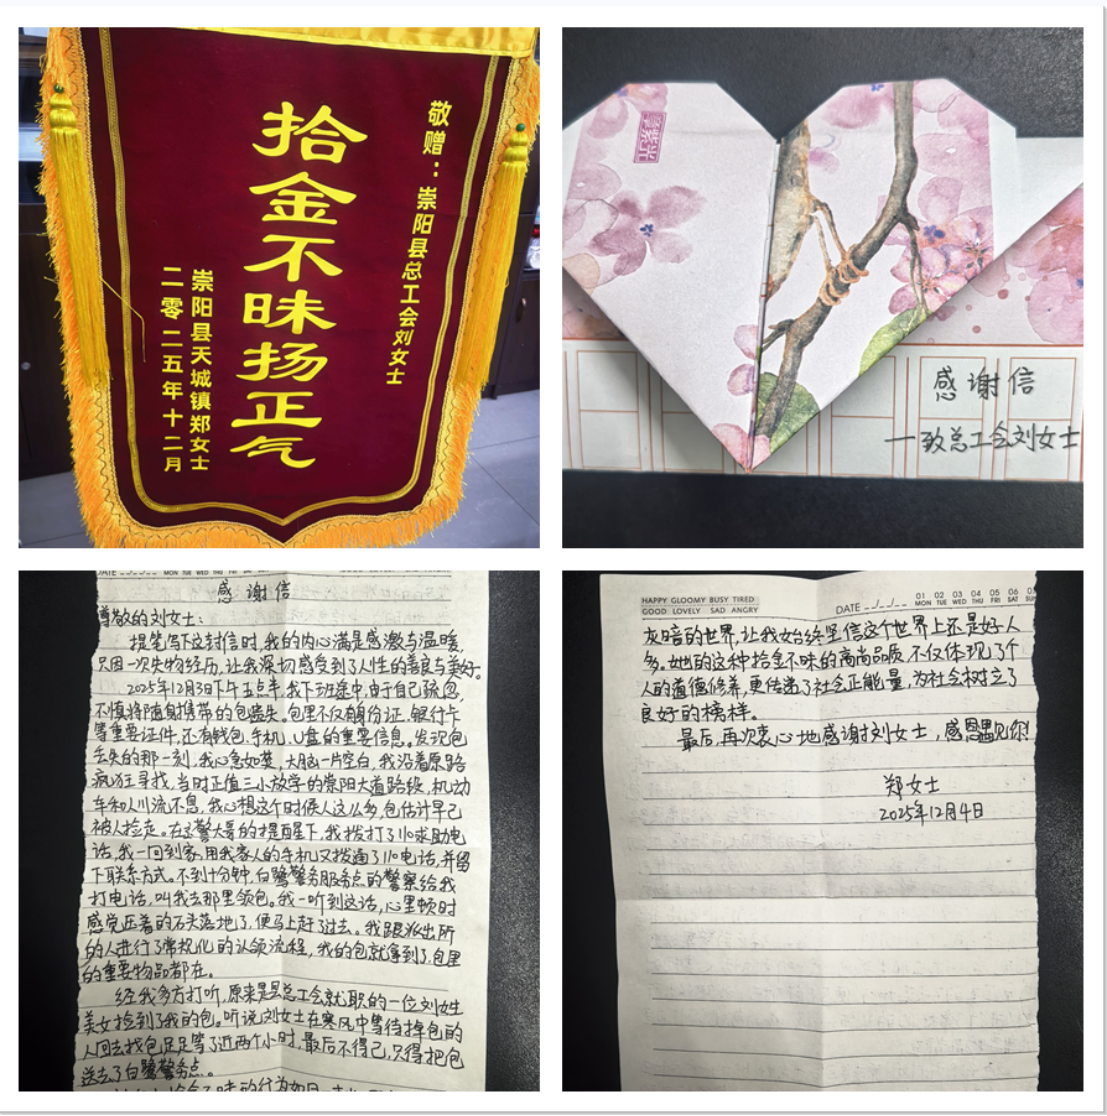 敬赠：崇阳县总工会刘女士
拾金不昧扬正气
崇阳县天城镇郑女士
二零二五年十二月
感谢信
一致总工会刘女士
MON TUE WED THU
感谢信
尊敬的刘女士：
提笔写下这封信时，我的内心满是感激与温暖，
只因一次失物经历，让我深切感受到了人性的善良与美好。
2025年12月3日下午五点半，我下班途中，由于自己疏忽，
不慎将随身携带的包遗失。包里不仅有身份证、银行卡
等重要证件，还有钱包、手机、U盘的重要信息。发现包
丢失的那一刻，我心急如焚，大脑一片空白，我沿着原路
疯狂寻找，当时正值三小放学的崇阳大道路段，机动
车和人川流不息，我心想这个时候人这么多，包估计早已
被人捡走。在交警大哥的提醒下，我拨打了110求助电
话，我一回到家，用我家人的手机又拨通了110电话，并留
下联系方式。不到十分钟，白鹭警务服务点的警察给我
打电话，叫我去那里领包。我一听到这话，心里顿时
感觉压着的石头落地了，便马上赶了过去。我跟派出所
的人进行了常规化的认领流程，我的包就拿到了，包里
的重要物品都在。
经我多方打听，原来是县总工会就职的一位刘姓
美女捡到了我的包。听说刘女士在寒风中等待掉包的
人回去找包足足等了近两个小时，最后不得已，只得把包
送去了白鹭警务点。
拾金不昧的行为如同
HAPPY GLOOMY BUSY TIRED
GOOD LOVELY SAD ANGRY
DATE _/_/_
01 02 03 04 05 06
MON TUE WED THU FRI SAT SUN
灰暗的世界，让我始终坚信这个世界上还是好人
多。她的这种拾金不昧的高尚品质，不仅体现了个
人的道德修养，更传递了社会正能量，为社会树立了
良好的榜样。
最后，再次衷心地感谢刘女士，感恩遇见你！
郑女士
2025年12月4日